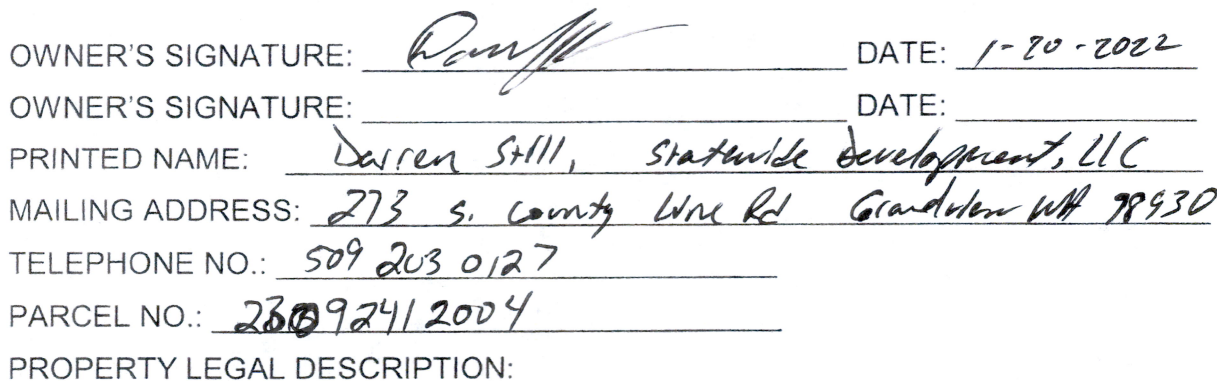 OWNER'S SIGNATURE: DATE: 1-20-2022
OWNER'S SIGNATURE: DATE:
PRINTED NAME: Darren Still, Statewide Development, LLC
MAILING ADDRESS: 273 S. County Line Rd Grandview WA 98930
TELEPHONE NO.: 509 203 0127
PARCEL NO.:
PROPERTY LEGAL DESCRIPTION: